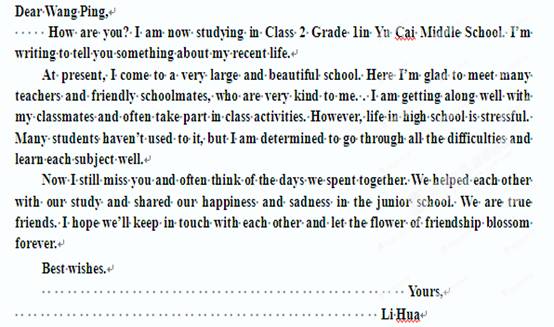 Dear Wang Ping,
How are you? I am now studying in Class 2 Grade 1in Yu Cai Middle School. I'm
writing to tell you something about my recent life.
At present, I come to a very large and beautiful school. Here I'm glad to meet many
teachers and friendly schoolmates, who are very kind to me. . I am getting along well with
my classmates and often take part in class activities. However, life in high school is stressful.
Many students haven't used to it, but I am determined to go through all the difficulties and
learn each subject well.
Now I still miss you and often think of the days we spent together. We helped each other
with our study and shared our happiness and sadness in the junior school. We are true
friends. I hope we'll keep in touch with each other and let the flower of friendship blossom
forever.
Best wishes.
Yours,
Li Hua